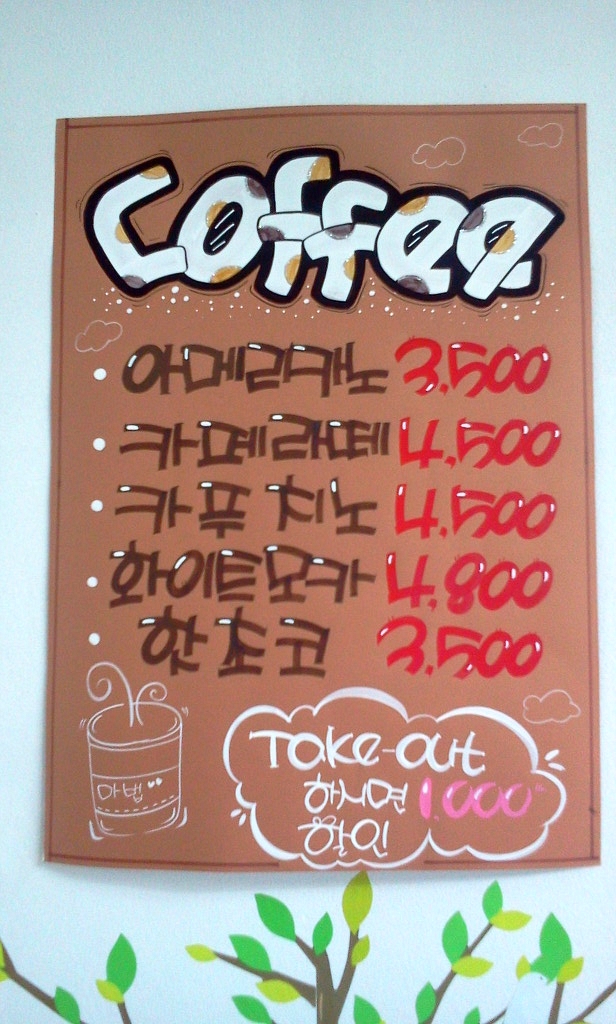 Coffee
아메리카노 3,500
카페라떼 4,500
카푸치노 4,500
화이트모카 4,800
핫초코 3,500
Take-out
하시면 1,000
할인